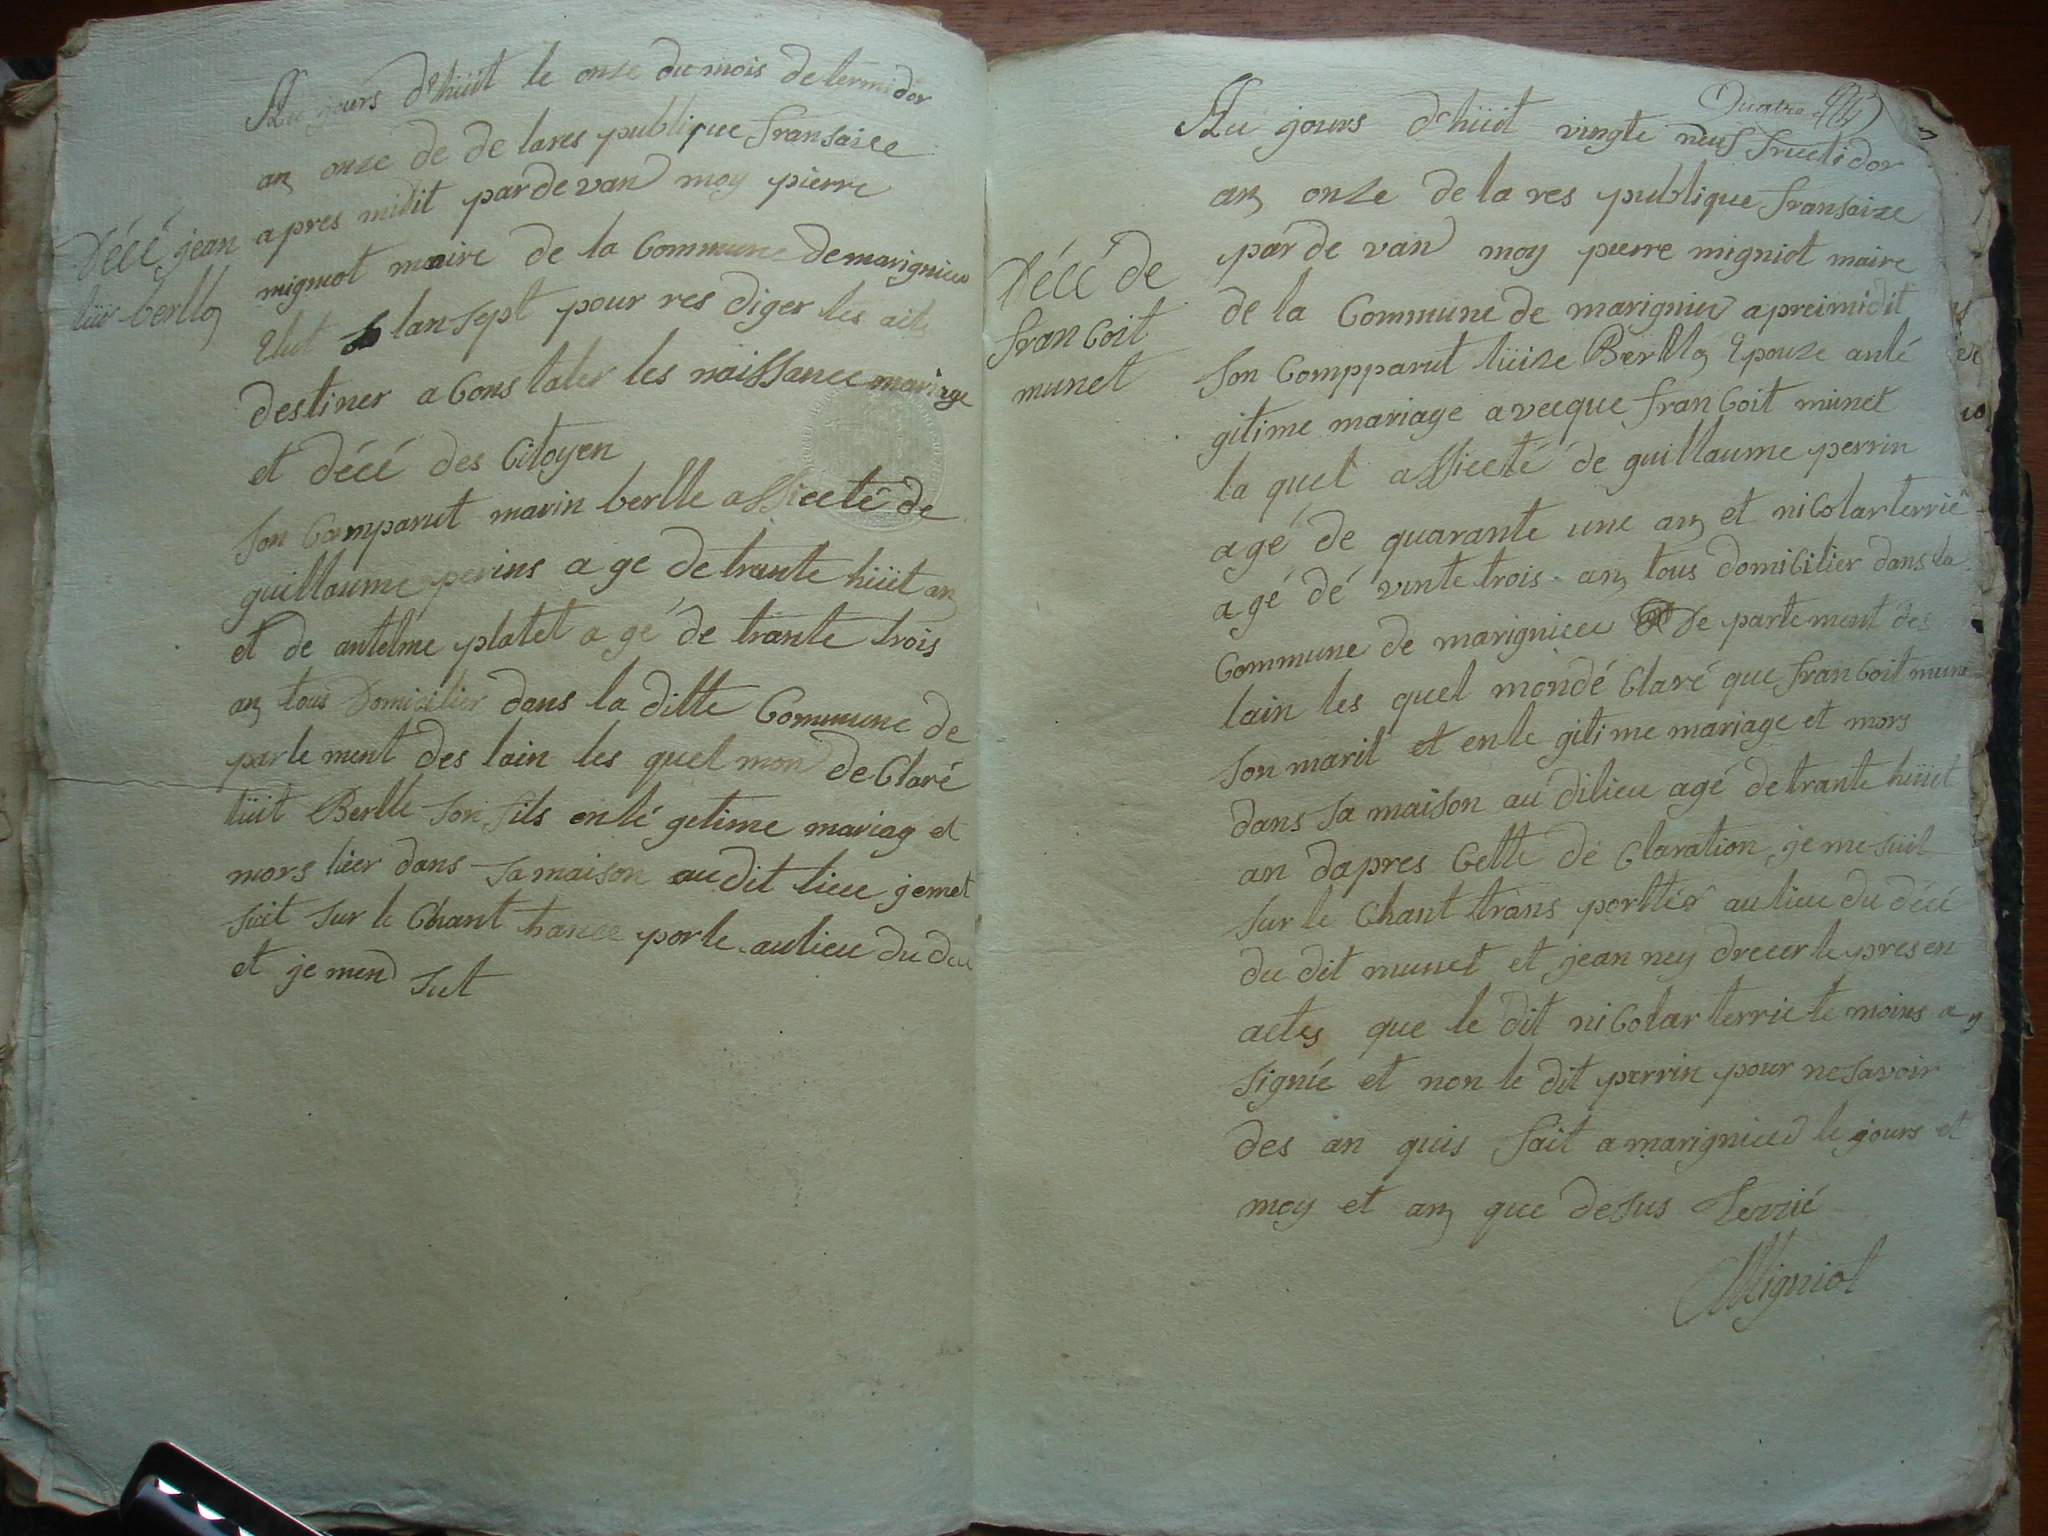 Au jours d'hüit le onze du mois de termidor
an onze de de la res publique fransaise
apres midit par de van moy pierre
migniot maire de la Commune de marignieu
Elut lan sept pour res diger les acte
destiner a Cons tater les naissance mariage
et décé des Citoyen
Décé jean
lüi berllo
son Comparut marin berlle assiceté de
guillaume perins a gé de trante hüit an
et de antelme platet a gé de trante trois
an tous Domicilier dans la ditte Commune de
parte ment des lain les quel mon de Claré
lüit Berlle son fils en lé getime mariag et
mors hier dans sa maison au dit lieu je met
suit sur le Chant trance porte au lieu du déce
et je mend sut
Quatre
Au jours d'hüit vingte neuf fructidor
an onze de la res publique fransaize
par de van moy pierre migniot maire
de la Commune de marignieu apreimidit
Décé de
fran Coit
munet
son Compparut lüize Berllo Epouze anlé
gitime mariage avecque fran Coit munet
la quel assiceté de guillaume perrin
agé de quarante une an et niColar terrié
agé dé vinte trois an tous domiCilier dans la
Commune de marignieu De parte ment des
lain les quel mondé Claré que fran Coit mune
son marit et en le gitime mariage et mors
dans sa maison au dilieu agé de trante hüit
an dapres Cette dé Claration je me suit
sur le Chant trans portter au lieu du décé
du dit munet et jean ney drecer le presen
actes que le dit niColar terrie te moins a
signie et non le dit perrin pour ne savoir
des an quis fait a marignieu le jours et
moy et an que desus Terrié
Migniot